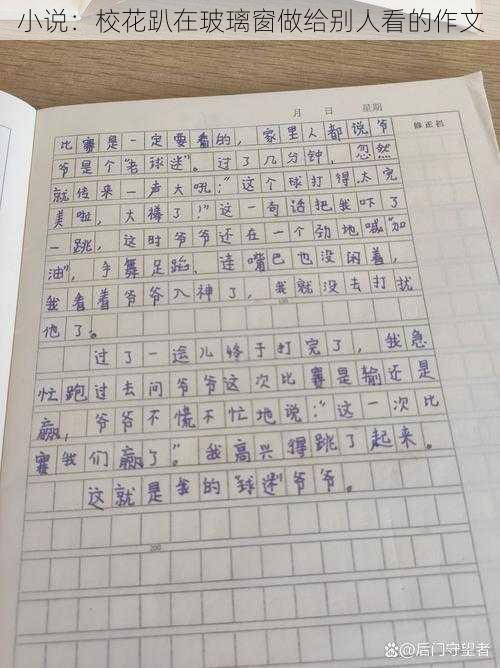 小说：校花趴在玻璃窗做给别人看的作文
月 日 星期
修正栏
比赛是一定要看的，家里人都说爷
爷是个“老球迷”。过了几分钟，忽然
就传来一声大吼：“这个球打得太完
美啦，太棒了！”这一句话把我吓了
一跳，这时爷爷还在一个劲地喊“加
油”，手舞足蹈，连嘴巴也没闲着，
我看着爷爷入神了，我就没去打扰
他了。
过了一会儿终于打完了，我急
忙跑过去问爷爷这次比赛是输还是
赢，爷爷不慌不忙地说：“这一次比
赛我们赢了”。我高兴得跳了起来。
这就是我的“球迷”爷爷。
200
@后门守望者